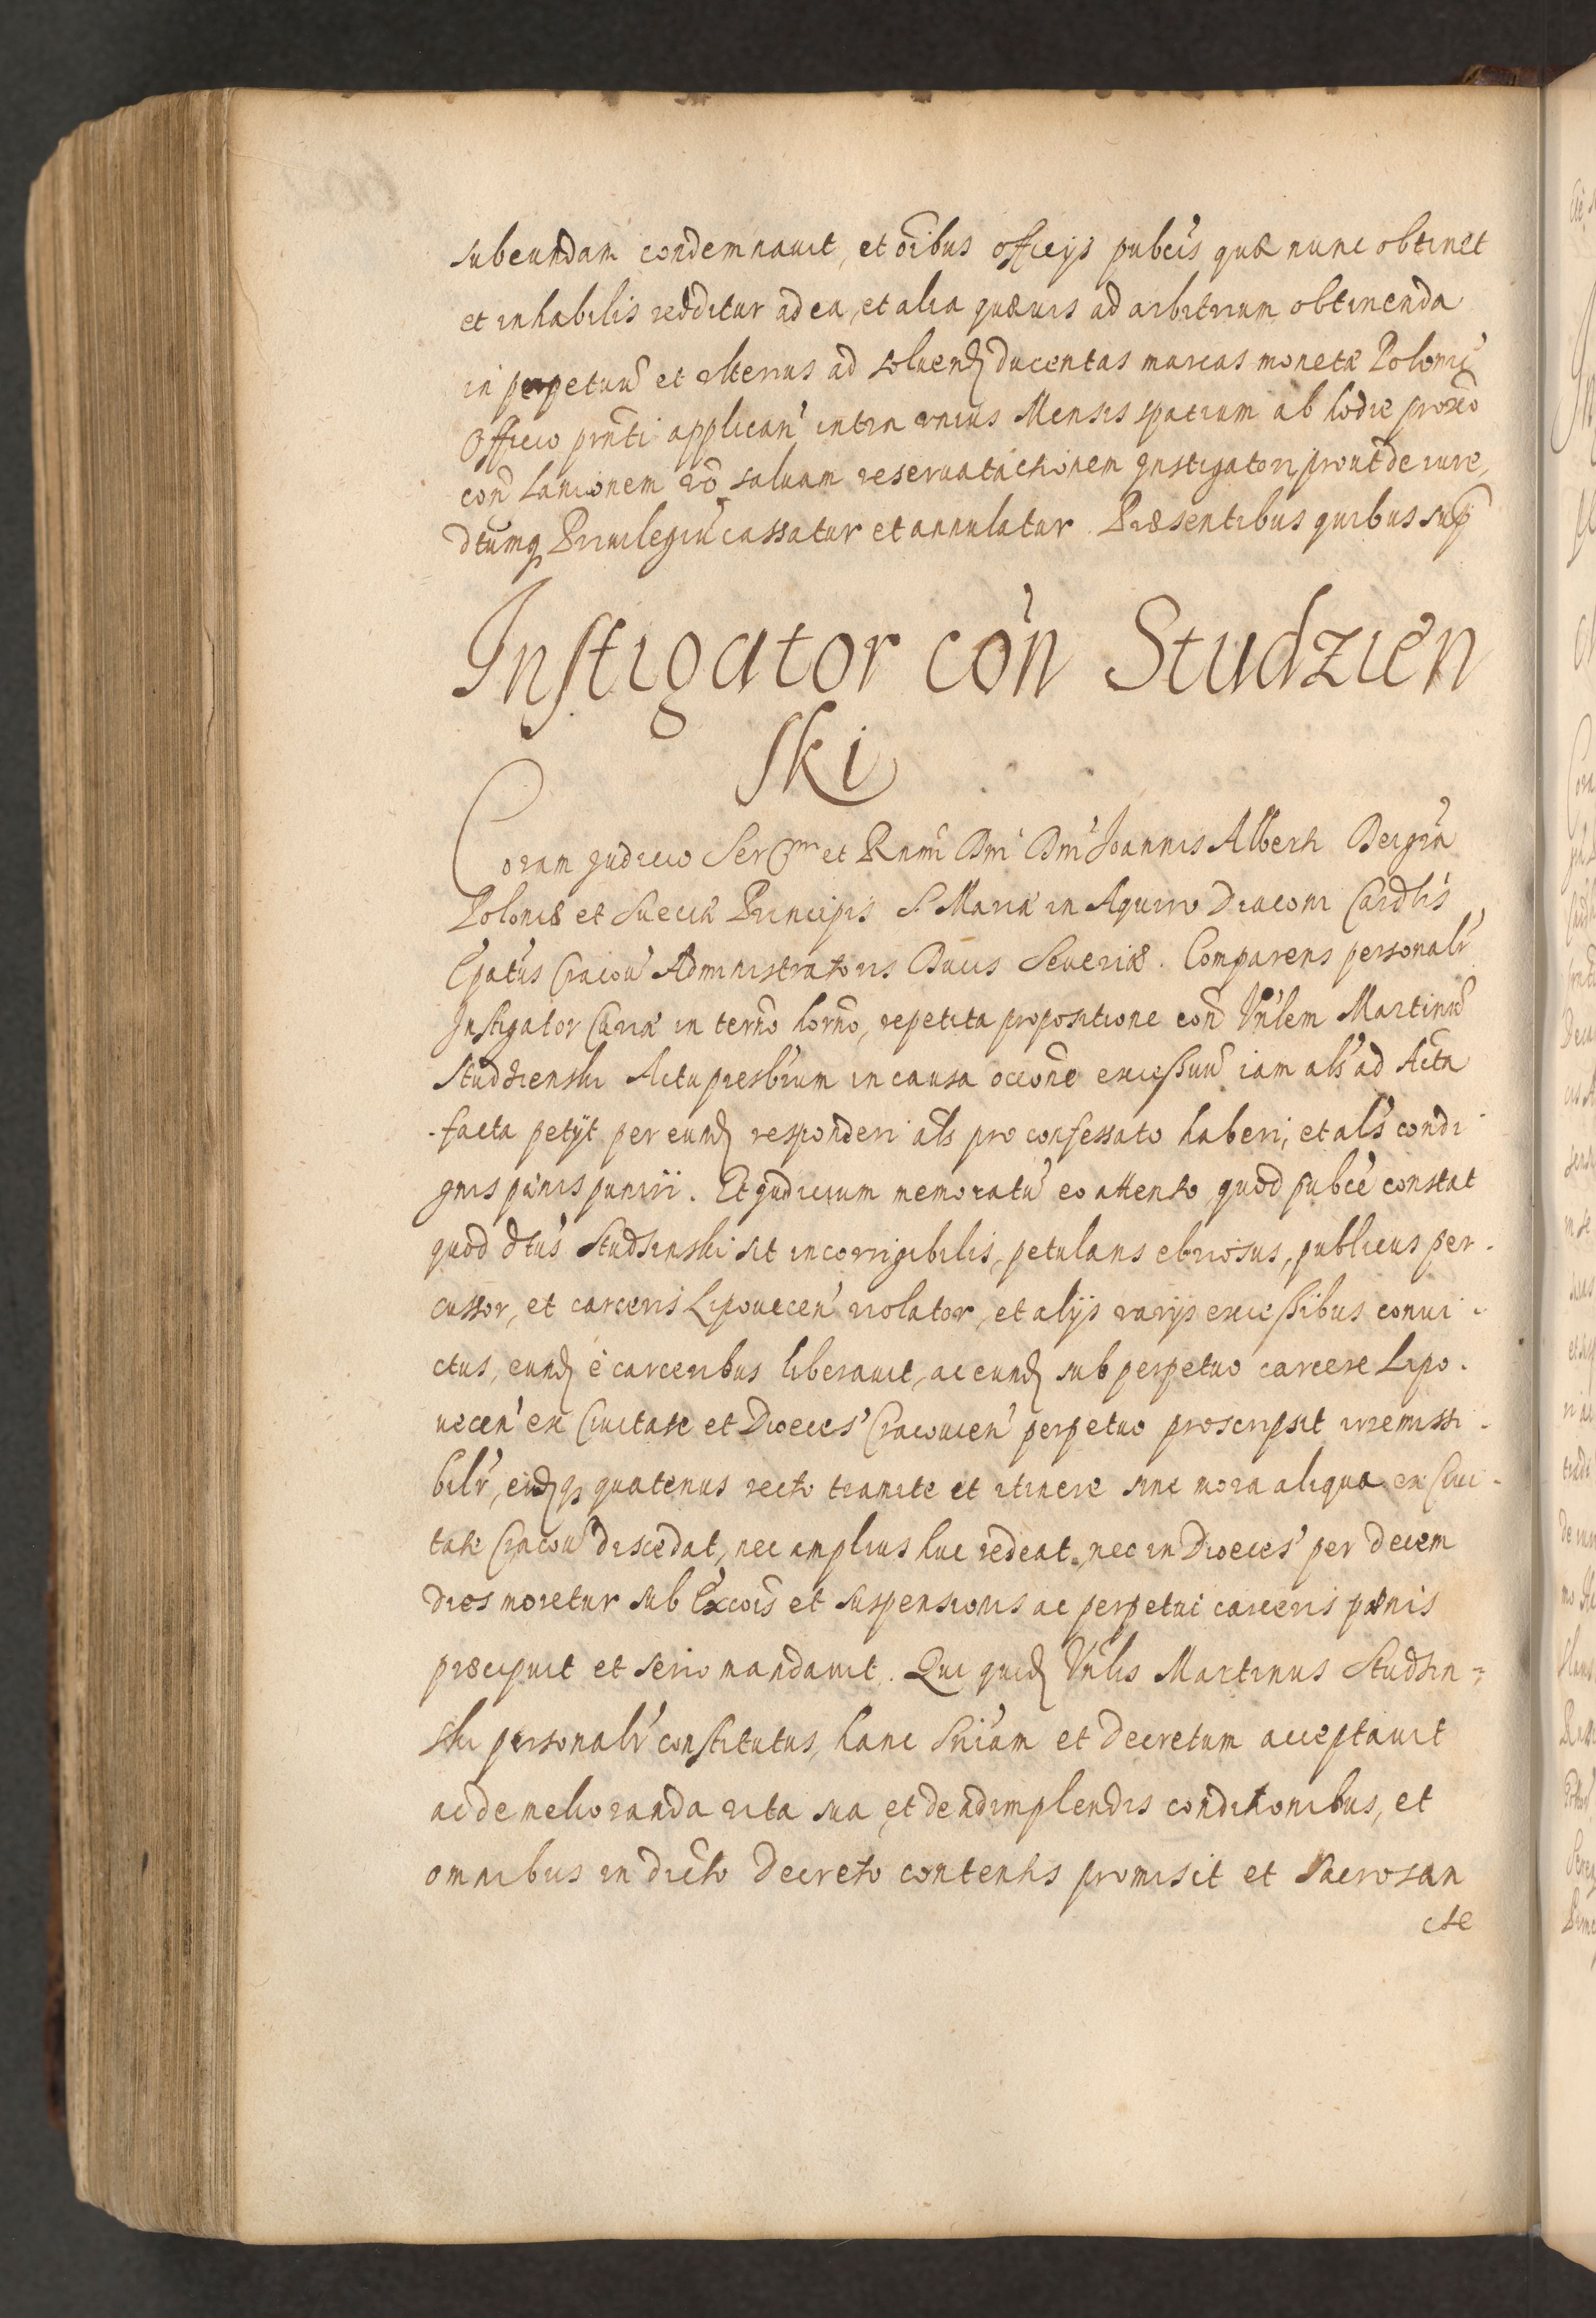 subeundam condemnauit, et oibus officijs pubcis quæ nunc obtinet
et inhabilis redditur ad ea, et alia quæuis ad arbitrium obtinenda
in perpetuu et ulterius ad soluend ducentas marcas monetæ Poloniæ
Officio pnti applican' intra vnius Mensis spatium ab hodie proxio
con Lanionem vo saluam reseruat actionem Instigatori, prout de iure,
dtumq Priuilegiu cassatur et annulatur. Præsentibus quibus sup
Instigator con Studzien
ski
Coram Judicio Ser et Rnmi Dni Dni Joannis Alberti Dei gra
Poloniæ et Sueciæ Principis S. Mariæ in Aquiro Diaconi Cardlis
Epatus Cracou' Administratoris Ducis Seueriæ. Comparens personalr
Instigator Curiæ in terno horno, repetita propositione con Vnlem Martinu
Studzienski Actu presbrum in causa occone excessuu iam als ad Acta
facta petÿt per eund responderi als pro confessato haberi, et als condi
gnis pœnis puniri. Et Judicium memoratu eo attento quod pubce constat
quod dtus Studsinski sit incorrigibilis, petulans ebriosus, publicus per-
cussor, et carceris Lipouecen' violator, et alijs varijs excessibus conui-
ctus, eund è carceribus liberauit, ac eund sub perpetuo carcere Lipo-
uecen' ex Ciuitate et Dioeces' Cracouien' perpetuo proscripsit irremissi-
bilr, eidq quatenus recto tramite et itinere sine mora aliqua ex Ciui-
tate Cracou' discedat, nec amplius huc redeat, nec in Dioeces' per decem
dies moretur sub Excois et suspensionis ac perpetui carceris pœnis
præcipuit et serio mandauit. Qui quid Vnlis Martinus Studsin=
ski personalr constitutus, hanc Sniam et Decretum acceptauit
ac de melioranda vita sua, et de adimplendis conditionibus, et
omnibus in dicto Decreto contentis promisit et Sacrosan
ctæ